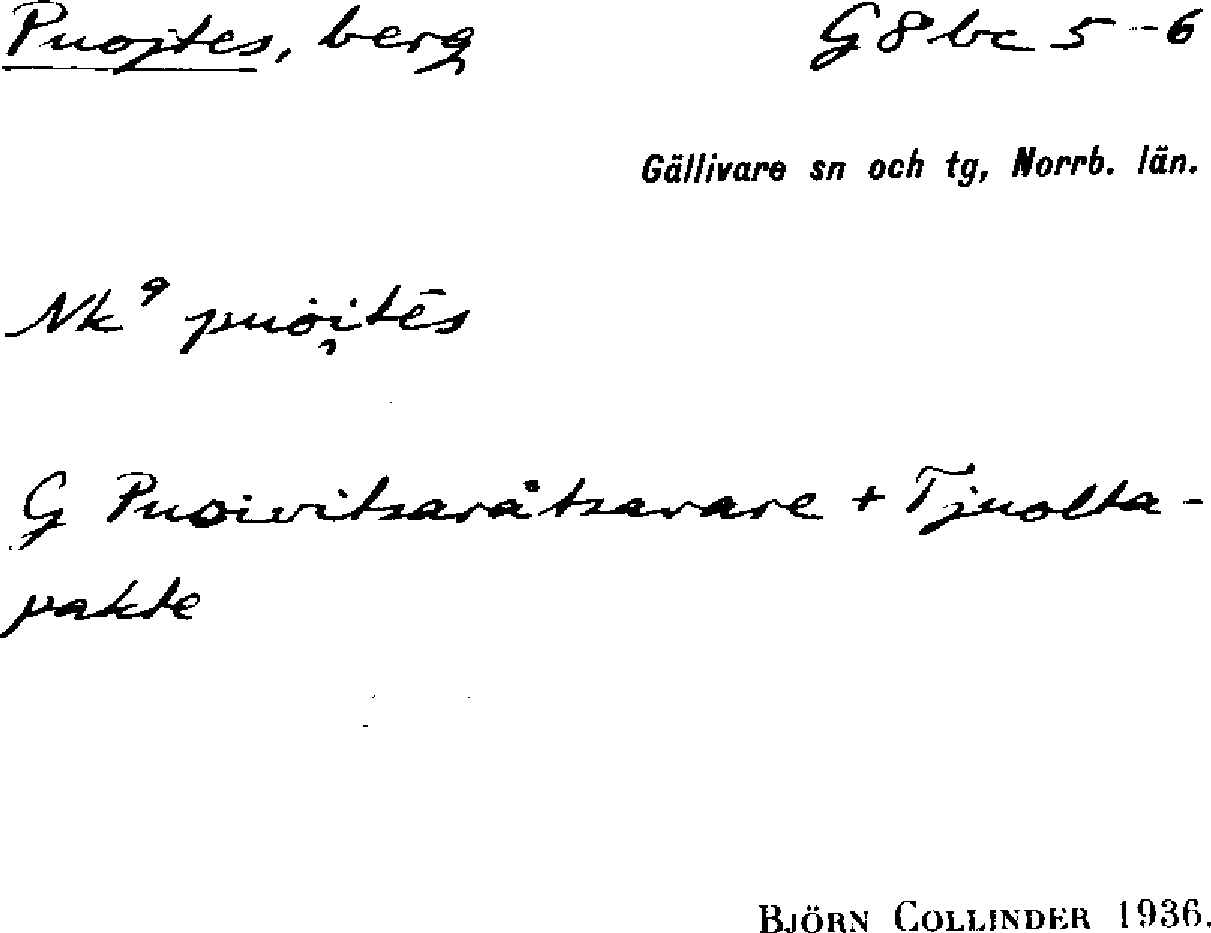 Puojtes, berg G8bc 5-6
Gällivare sn och tg, Norrb. län.
Nk⁹ puȯi̯tēs
G Puoivitsaråtsavare + Tjuolta-
pakte
BJÖRN COLLINDER 1936.